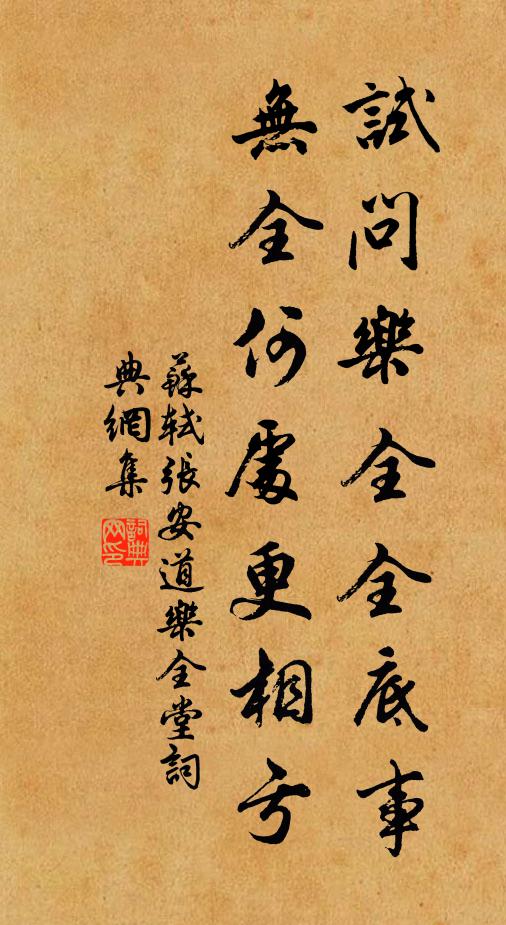 試問樂全全底事
無全何處更相虧
蘇軾張安道樂全堂詞
典網集
詞典網印